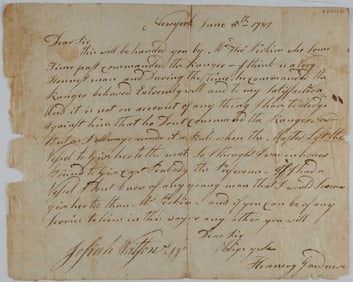 Newyork June 8th 1783
Dear Sir
this will be handed you by Mr Thos Pickin who some
Time past commanded the Ranger - I think is a very
Honest man and During the time he commanded the
Ranger behaved Extremly well and to my Satisfaction
And it is not on account of any thing I have to aledge
against him that he Dont command the Ranger now
But as I allways made it a Rule when the Master Left the
Vessel to Give her to the mate So I thought I was in honor
Bound to Give Capt Peabody the If I had a
Vessel I Dont know of any young man that I would Sooner
Give her to than Mr and if you can be of any
Service to him in this way or any other you will
Dear Sir
oblige yrs
Josiah Watson Esqr
Gardner